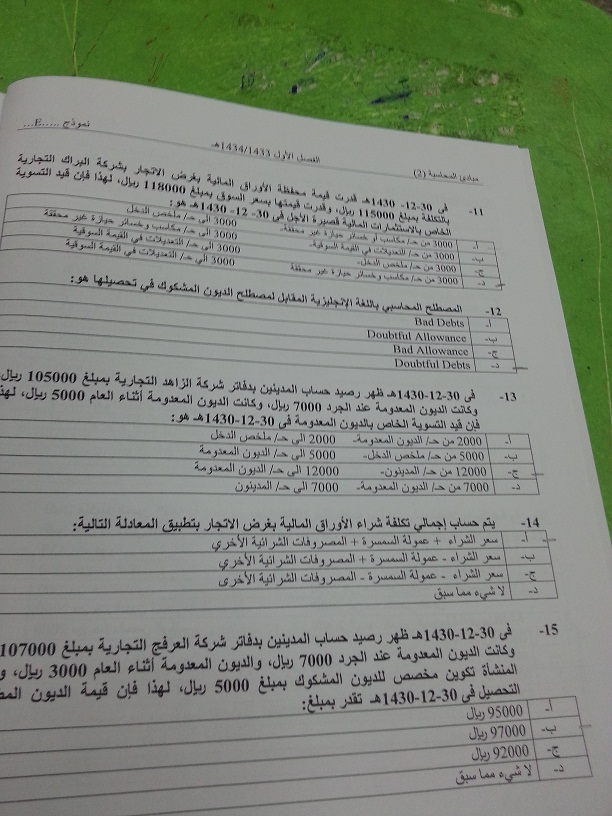 نموذج ....E...
الفصل الأول 1434/1433هـ
مبادئ المحاسبة (2)
11- في 30-12- 1430هـ قدرت قيمة محفظة الأوراق المالية بغرض الاتجار بشركة البراك التجارية
بالتكلفة بمبلغ 115000 ريال، وقدرت قيمتها بسعر السوق بمبلغ 118000 ريال، لهذا فإن قيد التسوية
الخاص بالاستثمارات المالية قصيرة الأجل في 30 -12- 1430هـ هو:
أ- 3000 من حـ/ مكاسب أو خسائر حيازة غير محققة- 3000 الى حـ/ ملخص الدخل
ب- 3000 من حـ/ التعديلات في القيمة السوقية- 3000 الى حـ/ مكاسب وخسائر حيازة غير محققة
ج- 3000 من حـ/ ملخص الدخل- 3000 الى حـ/ التعديلات في القيمة السوقية
د- 3000 من حـ/ مكاسب وخسائر حيازة غير محققة 3000 الى حـ/ التعديلات في القيمة السوقية
12- المصطلح المحاسبي باللغة الإنجليزية المقابل لمصطلح الديون المشكوك في تحصيلها هو:
أ- Bad Debts
ب- Doubtful Allowance
ج- Bad Allowance
د- Doubtful Debts
13- في 30-12-1430هـ ظهر رصيد حساب المدينين بدفاتر شركة الزاهد التجارية بمبلغ 105000 ريال
وكانت الديون المعدومة عند الجرد 7000 ريال، وكانت الديون المعدومة أثناء العام 5000 ريال، لهذا
فإن قيد التسوية الخاص بالديون المعدومة في 30-12-1430هـ هو:
أ- 2000 من حـ/ الديون المعدومة- 2000 الى حـ/ ملخص الدخل
ب- 5000 من حـ/ ملخص الدخل- 5000 الى حـ/ الديون المعدومة
ج- 12000 من حـ/ المدينون- 12000 الى حـ/ الديون المعدومة
د- 7000 من حـ/ الديون المعدومة- 7000 الى حـ/ المدينون
14- يتم حساب إجمالي تكلفة شراء الأوراق المالية بغرض الاتجار بتطبيق المعادلة التالية:
أ- سعر الشراء + عمولة السمسرة + المصروفات الشرائية الأخري
ب- سعر الشراء - عمولة السمسرة + المصروفات الشرائية الأخري
ج- سعر الشراء - عمولة السمسرة - المصروفات الشرائية الأخرى
د- لا شيء مما سبق
15- في 30-12-1430هـ ظهر رصيد حساب المدينين بدفاتر شركة العرفج التجارية بمبلغ 107000
وكانت الديون المعدومة عند الجرد 7000 ريال، والديون المعدومة أثناء العام 3000 ريال،
المنشأة تكوين مخصص للديون المشكوك بمبلغ 5000 ريال، لهذا فإن قيمة الديون
التحصيل في 30-12-1430هـ تقدر بمبلغ:
أ- 95000 ريال
ب- 97000 ريال
ج- 92000 ريال
د- لا شيء مما سبق